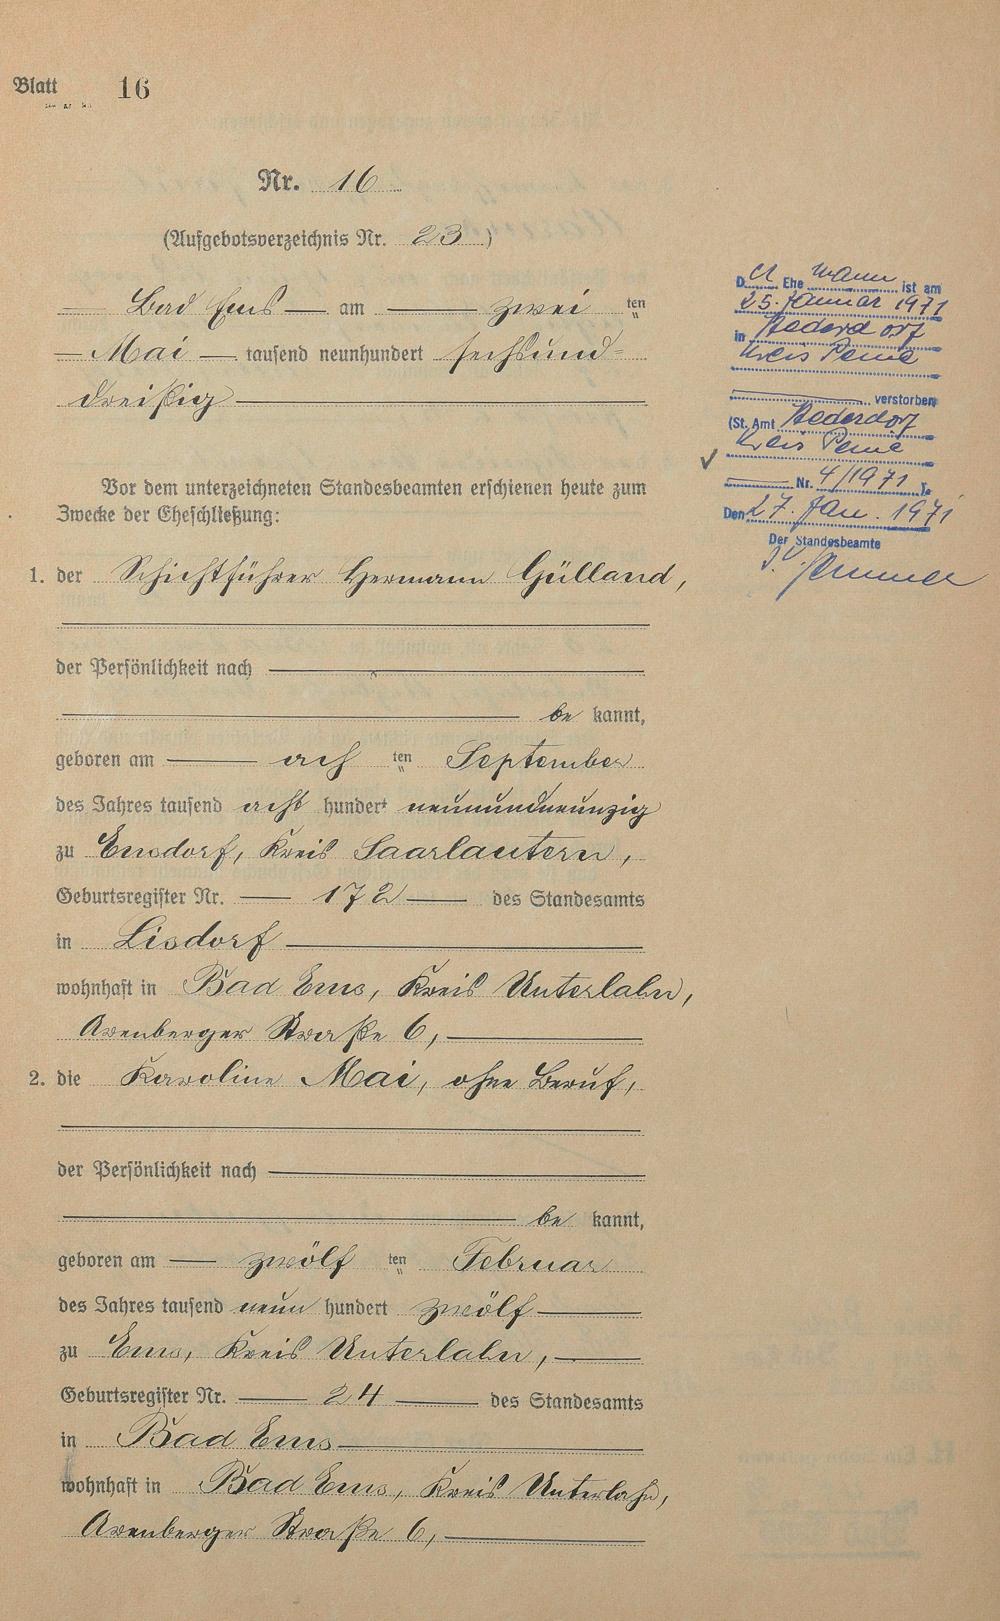 Blatt 16
Nr. 16
(Aufgebotsverzeichnis Nr. 23)
Bad Ems am zwei ten
Mai tausend neunhundert sechsund-
dreißig
Vor dem unterzeichneten Standesbeamten erschienen heute zum
Zwecke der Eheschließung:
1. der Schichtführer Hermann Gülland,
der Persönlichkeit nach
be kannt,
geboren am ach ten September
des Jahres tausend acht hundert neunundneunzig
zu Ensdorf, Kreis Saarlautern,
Geburtsregister Nr. 172 des Standesamts
in Lisdorf
wohnhaft in Bad Ems, Kreis Unterlahn,
Arenberger Straße 6,
2. die Karoline Mai, ohne Beruf,
der Persönlichkeit nach
be kannt,
geboren am zwölf ten Februar
des Jahres tausend neun hundert zwölf
zu Ems, Kreis Unterlahn,
Geburtsregister Nr. 24 des Standesamts
in Bad Ems
wohnhaft in Bad Ems, Kreis Unterlahn,
Arenberger Straße 6,
D er Ehe mann ist am
25. Januar 1971
in Stederdorf
Kreis Peine
verstorben
(St. Amt Stederdorf
Kreis Peine
Nr. 4/1971
Den 27. Jan. 1971
Der Standesbeamte